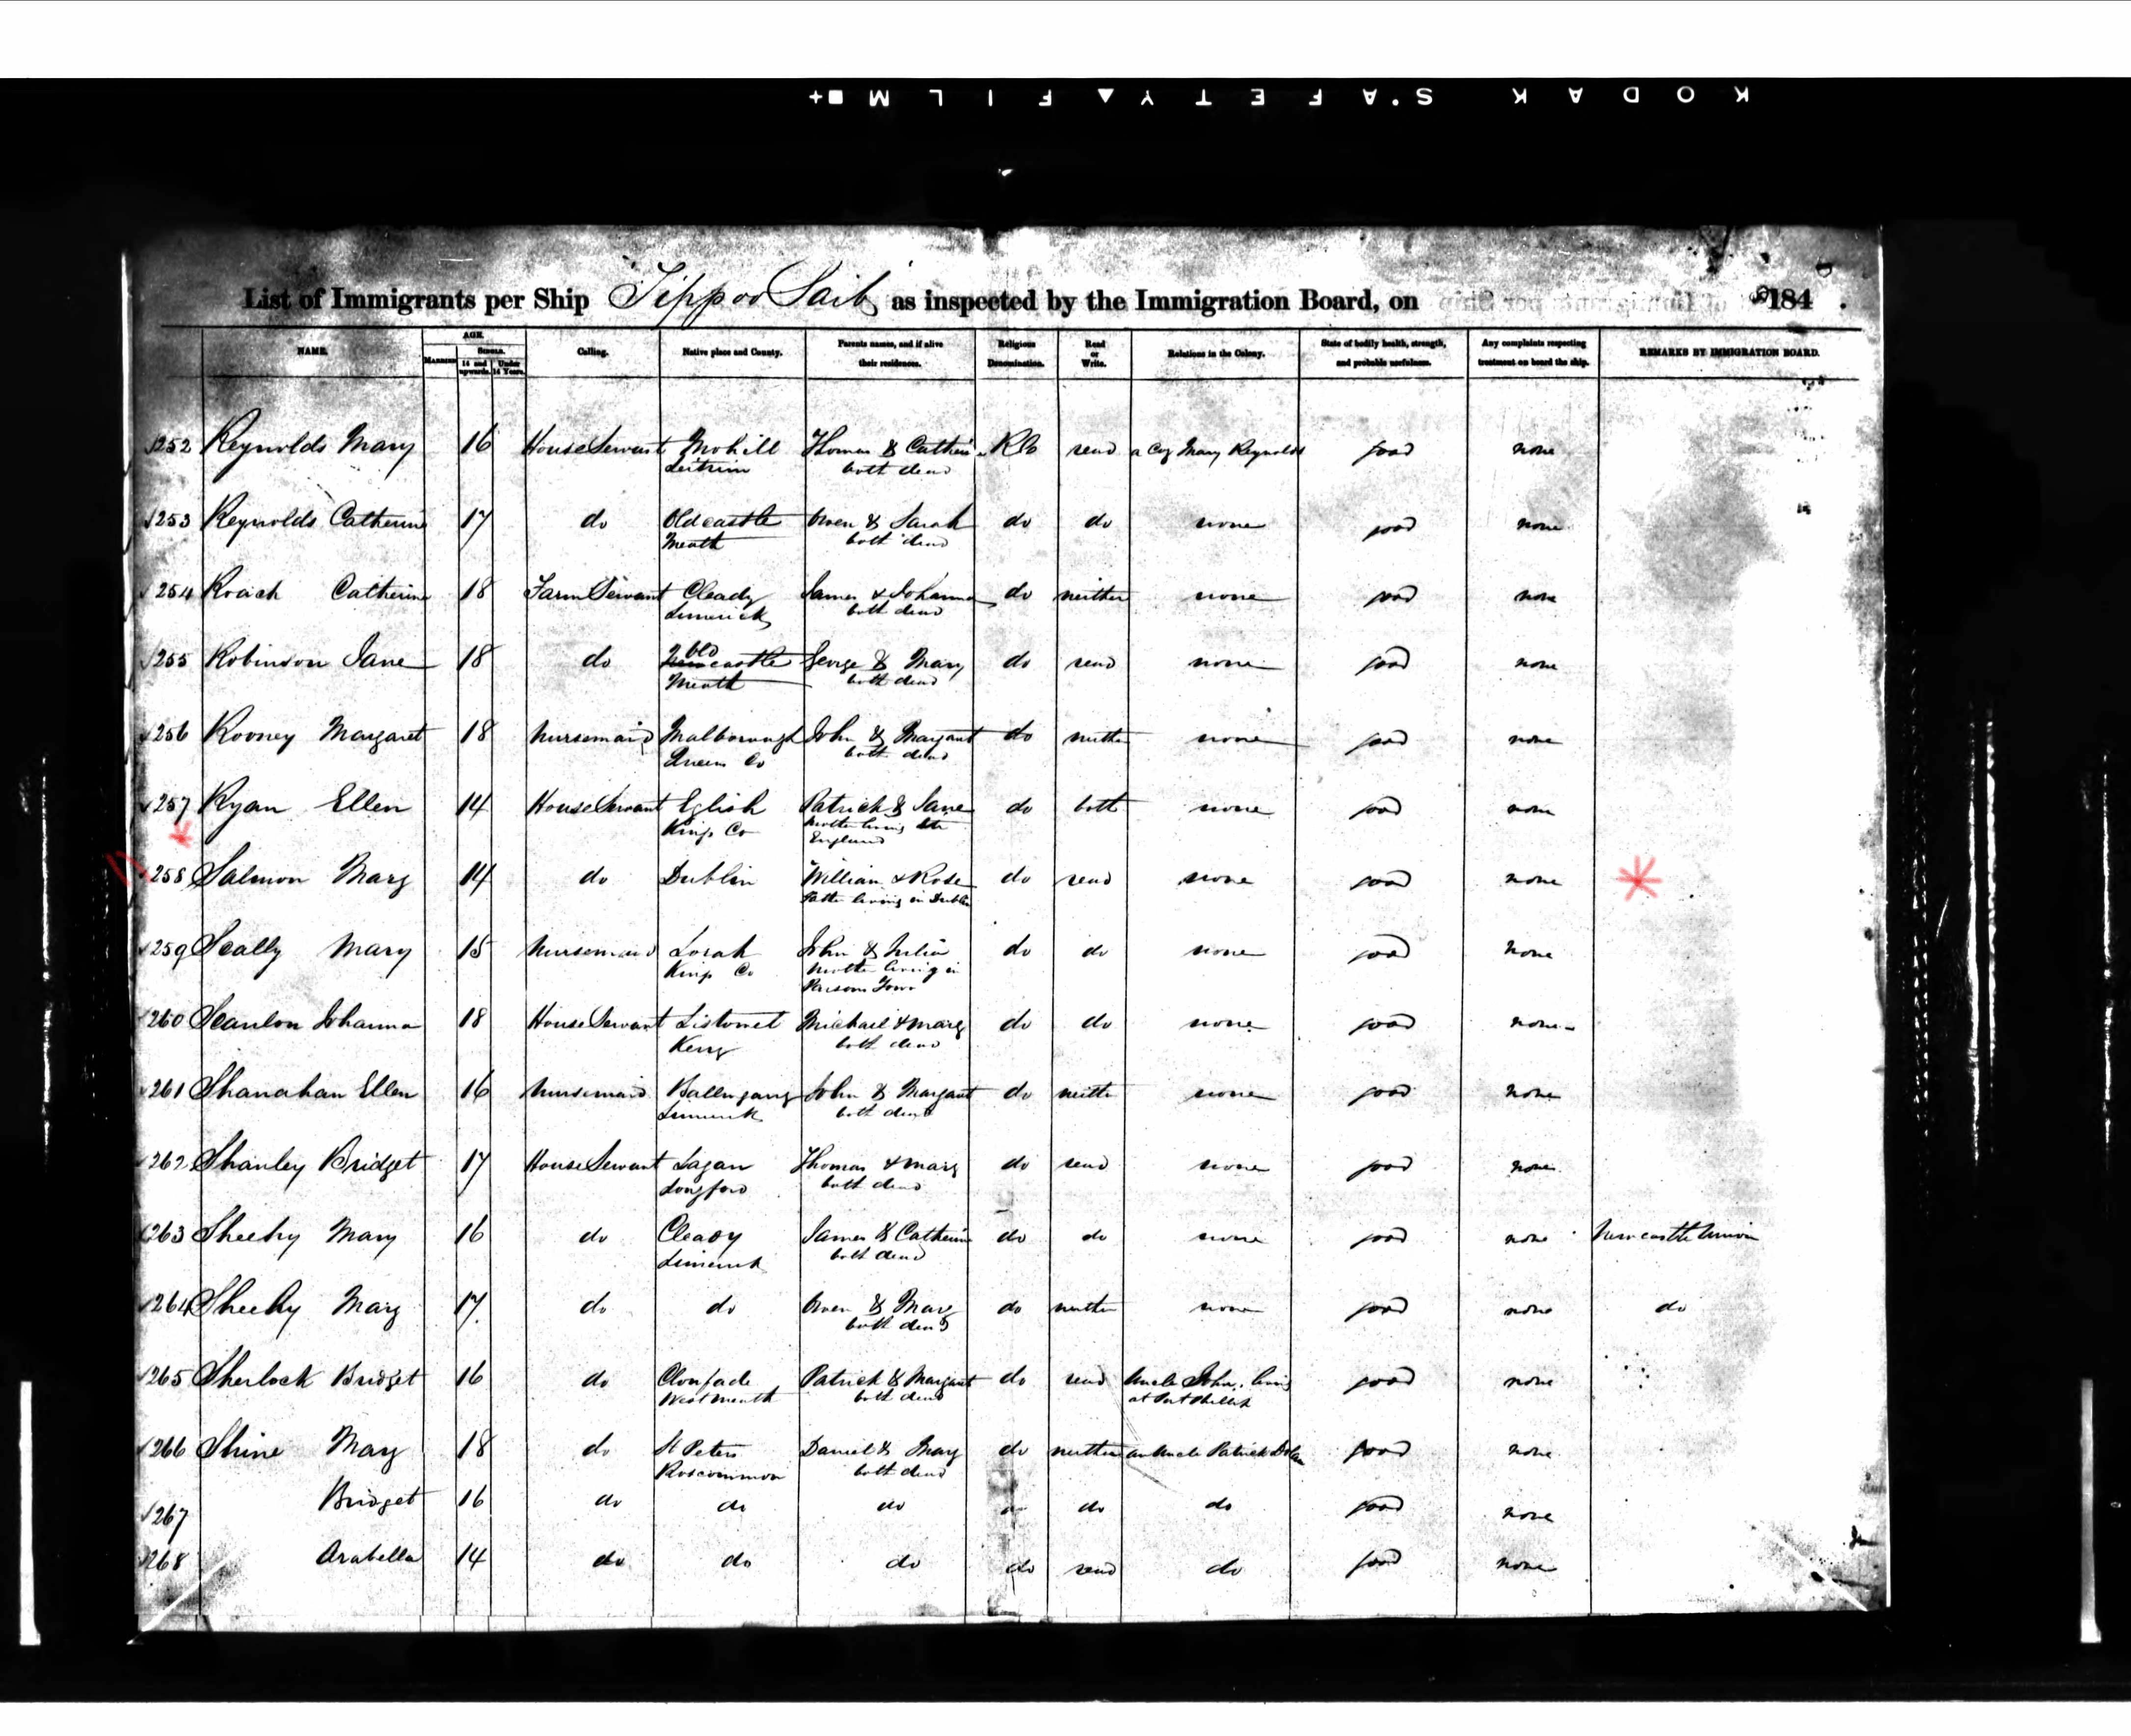 KODAK S'AFETY▲FILM■+
List of Immigrants per Ship "Tippoo Saib" as inspected by the Immigration Board, on 184 .
NAME. AGE. Calling. Native place and County. Parents names, and if alive their residences. Religious Denomination. Read or Write. Relations in the Colony. State of bodily health, strength, and probable usefulness. Any complaints respecting treatment on board the ship. REMARKS BY IMMIGRATION BOARD.
MARRIED SINGLE. 14 and upwards. Under 14 Years.
252 Reynolds Mary 16 House Servant Mohill Thomas & Catherine RC read a Mary Reynolds good none
Leitrim both dead
253 Reynolds Catherine 17 do Oldcastle Owen & Sarah do do none good none
Meath both dead
254 Roach Catherine 18 Farm Servant Cleady James & Johanna do neither none good none
Limerick both dead
255 Robinson Jane 18 do Old castle George & Mary do read none good none
Meath both dead
256 Rooney Margaret 18 Nursemaid Malborough John & Margaret do neither none good none
Queens Co both dead
257 Ryan Ellen 14 House Servant Eglish Patrick & Jane do both none good none
Kings Co Mother living
England
258 Salmon Mary 14 do Dublin William & Rose do read none good none
Father living in Dublin
259 Scally Mary 15 Nursemaid Lorah John & Julia do do none good none
Kings Co Mother living in
Parsons Town
260 Scanlon Johanna 18 House Servant Listowel Michael & Mary do do none good none
Kerry both dead
261 Shanahan Ellen 16 Nursemaid Ballingarry John & Margaret do neither none good none
Limerick both dead
262 Shanley Bridget 17 House Servant Lagan Thomas & Mary do read none good none
Longford both dead
263 Sheehy Mary 16 do Cleady James & Catherine do do none good none Newcastle Union
Limerick both dead
264 Sheehy Mary 17 do do Owen & Mary do neither none good none do
both dead
265 Sherlock Bridget 16 do Patrick & Margaret do read Uncle John, living good none
Westmeath both dead at Port Phillip
266 Shine Mary 18 do St Peters Daniel & Mary do neither an Uncle Patrick Dolan good none
Roscommon both dead
267 Bridget 16 do do do do do do good none
268 Arabella 14 do do do do read do good none